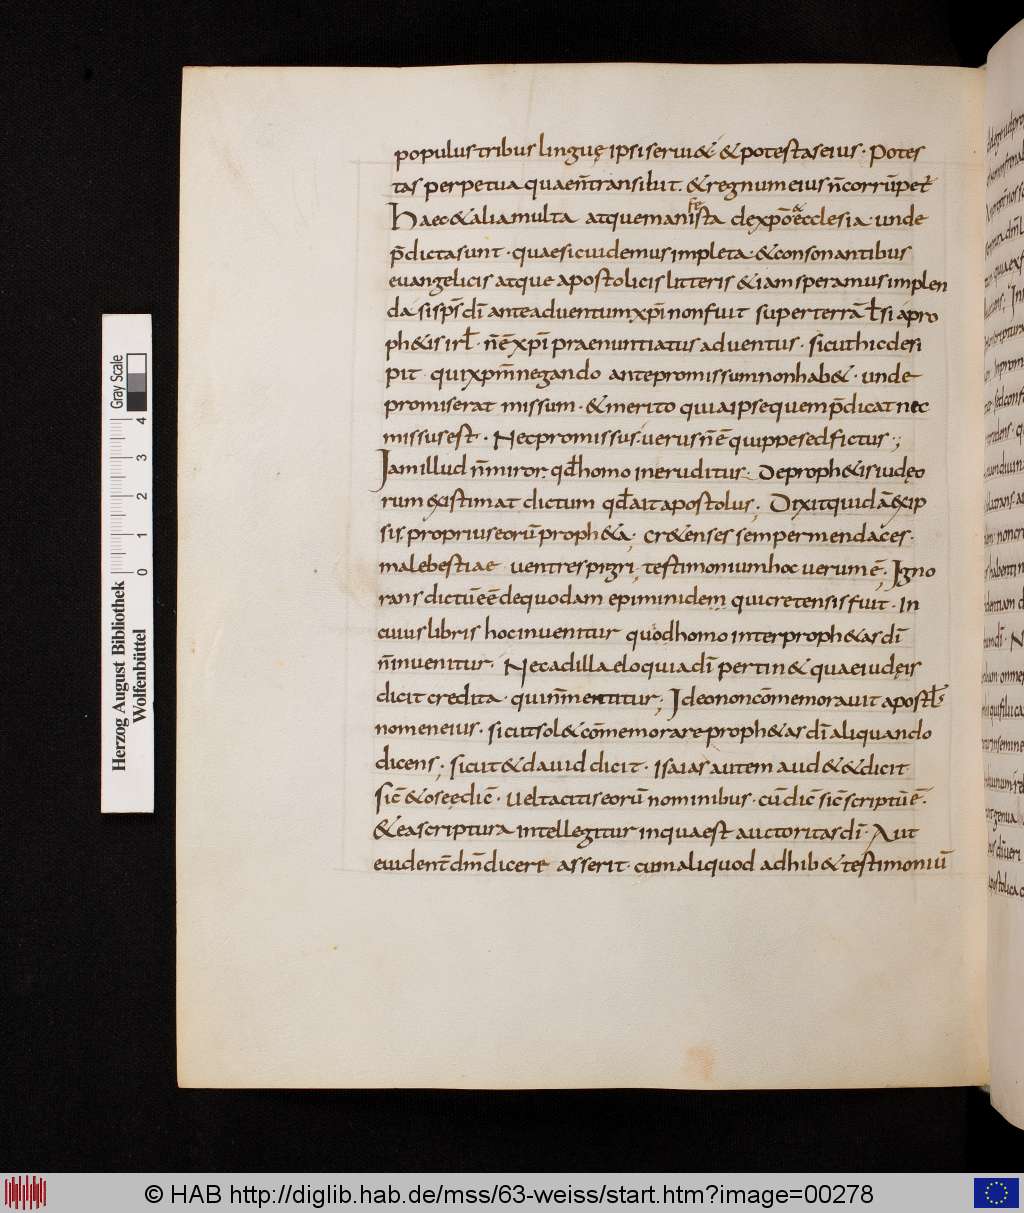 populus tribus linguę ipsi seruiet & potestas eius · Potes
tas perpetua quae n̄ transibit . & regnum eius n̄ corrūpet̄
Haec & alia multa atque manifesta de xp̄o & aecclesia · unde
p̄dicta sunt · quae sic uidemus impleta · & consonantibus
euangelicis atque apostolicis litteris & iam speramus implen
da · si sp̄s dī ante aduentum xp̄i non fuit super terrā ł si a pro
phetis irł · n̄ ē xp̄i praenuntiatus aduentus · sicut hic deri
pit qui xp̄m negando ante promissum non habet · unde
promiserat missum · & merito quia ipse quem p̄dicat nec
missus est · Nec promissus · uerus n̄ ē quippe sed fictus ·;
Iam illud n̄ miror · qđ homo ineruditus · De prophetis iudęo
rum existimat dictum qđ ait apostolus ; Dixit quidā ex ip
sis · proprius eorū propheta ; cretenses semper mendaces ·
male bestiae uentres pigri ; testimonium hoc uerum ē ; Igno
rans dictū eē de quodam epiminidem qui cretensis fuit · In
cuius libris hoc inuenitur quod homo inter prophetas dī
n̄ inuenitur · Nec ad illa eloquia dī pertinet quae iudęis
dicit credita · qui n̄ mentitur ; Ideo non cōmemorauit apostł's
nomen eius · sicut solet cōmemorare prophetas dī aliquando
dicens ; sicut & dauid dicit · Isaias autem audet & dicit
sic̄ & oseę dic̄ · Uel tacitis eorū nominibus · cū dic̄ sic̄ scriptū ē ·
& ea scriptura intellegitur in qua est auctoritas dī · Aut
euident̄ dn̄m dicere asserit · cum aliquod adhibet testimoniū
Herzog August Bibliothek
Wolfenbüttel
0 1 2 3 4
Gray Scale
© HAB http://diglib.hab.de/mss/63-weiss/start.htm?image=00278